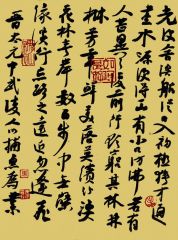 晉太元中武陵人捕魚為業
緣溪行忘路之遠近忽逢桃
花林夾岸數百步中無雜
樹芳草鮮美落英繽紛漁
人甚異之復前行欲窮其林林
盡水源便得一山山有小口彷彿若有
光便舍船從口入初極狹才通